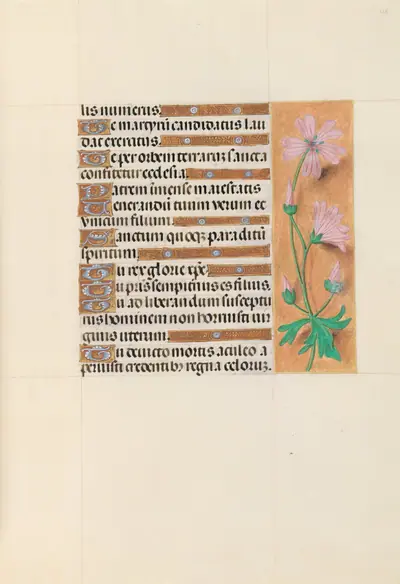 lis numerus.
Te martyrũ candidatus lau
dat exercitus.
Te per orbem terrarũ sancta
confitetur ecclesia.
Patrem imense maiestatis
Venerandũ tuum verum et
vnicum filium.
Sanctum quoqz paraclitũ
spiritum.
Tu rex glorie xp̃e.
Tu pr̃is sempiternus es filius.
Tu ad liberandum susceptu
rus hominem non horruisti vir
ginis uterum.
Tu deuicto mortis aculeo a
peruisti credentibꝰ regna celorũ.